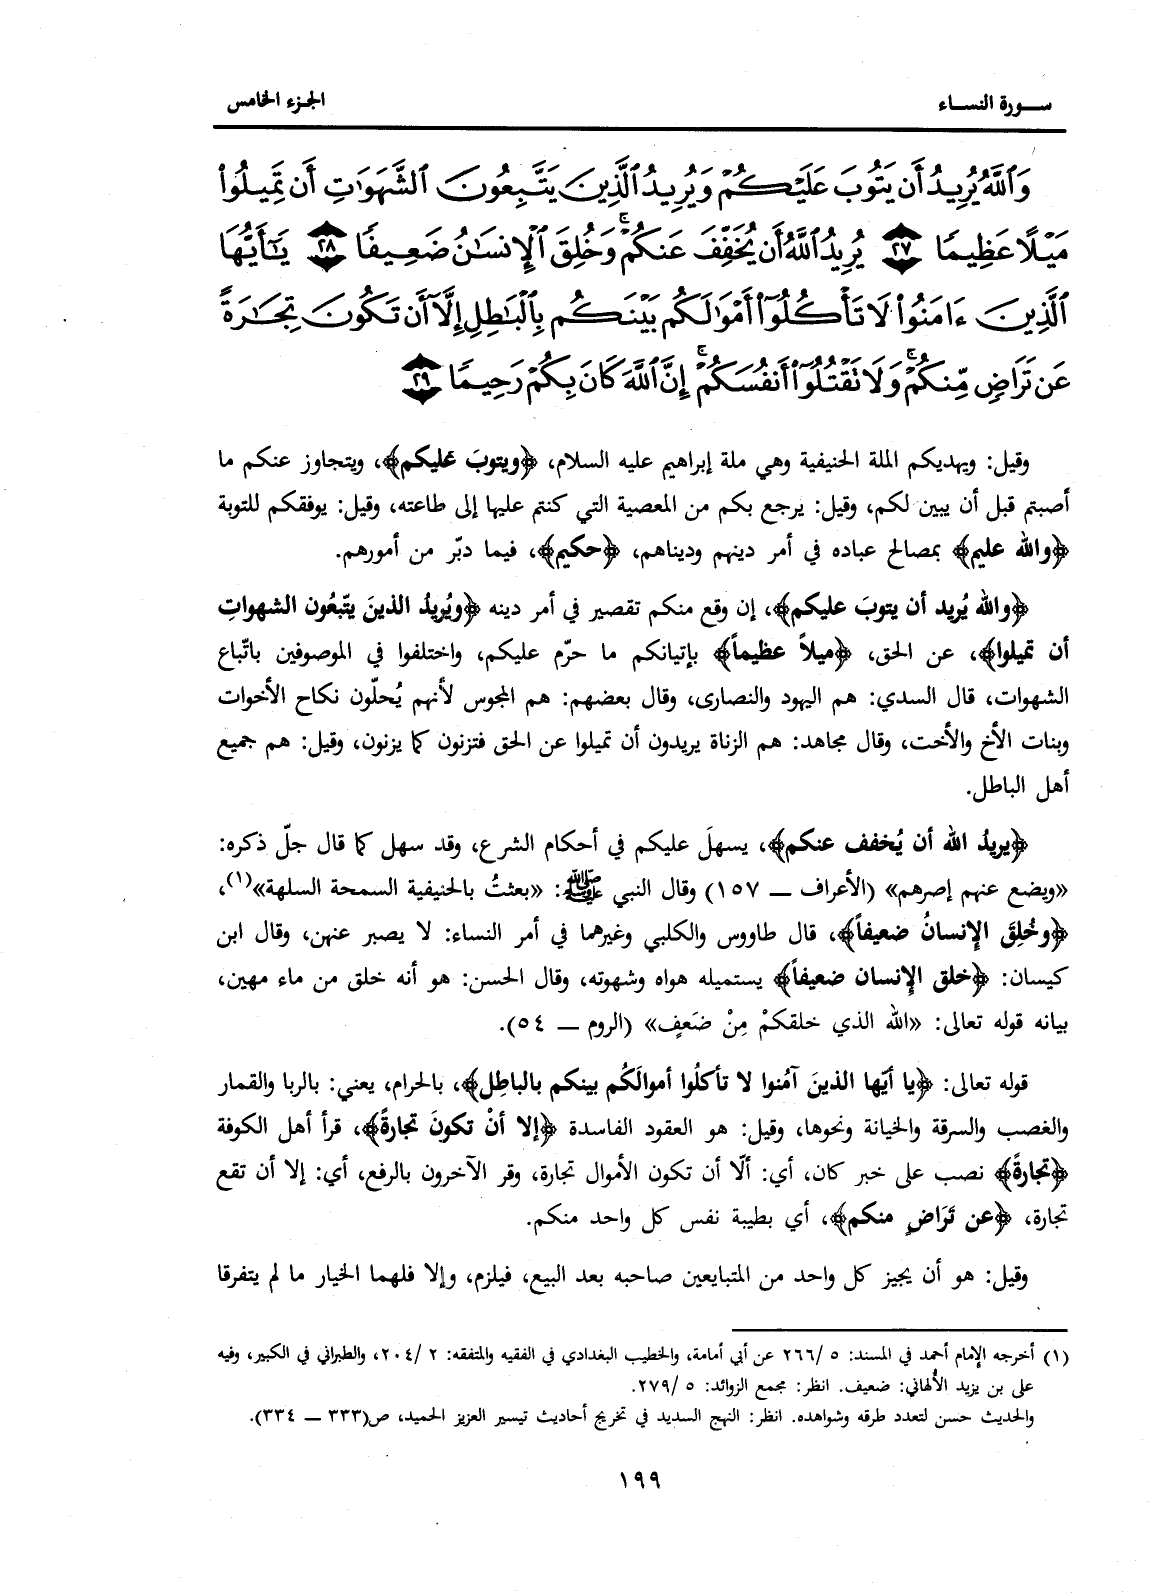 ســورة النســاء
الجزء الخامس
وَٱللَّهُ يُرِيدُ أَن يَتُوبَ عَلَيْكُمْ وَيُرِيدُ ٱلَّذِينَ يَتَّبِعُونَ ٱلشَّهَوَٰتِ أَن تَمِيلُوا۟
مَيْلًا عَظِيمًا ٢٧ يُرِيدُ ٱللَّهُ أَن يُخَفِّفَ عَنكُمْ ۚ وَخُلِقَ ٱلْإِنسَٰنُ ضَعِيفًا ٢٨ يَٰٓأَيُّهَا
ٱلَّذِينَ ءَامَنُوا۟ لَا تَأْكُلُوٓا۟ أَمْوَٰلَكُم بَيْنَكُم بِٱلْبَٰطِلِ إِلَّآ أَن تَكُونَ تِجَٰرَةً
عَن تَرَاضٍ مِّنكُمْ ۚ وَلَا تَقْتُلُوٓا۟ أَنفُسَكُمْ ۚ إِنَّ ٱللَّهَ كَانَ بِكُمْ رَحِيمًا ٢٩
وقيل: ويهديكم الملة الحنيفية وهي ملة إبراهيم عليه السلام، ﴿ويتوبَ عليكم﴾، ويتجاوز عنكم ما
أصبتم قبل أن يبين لكم، وقيل: يرجع بكم من المعصية التي كنتم عليها إلى طاعته، وقيل: يوفقكم للتوبة
﴿والله عليم﴾ بمصالح عباده في أمر دينهم وديناهم، ﴿حكيم﴾، فيما دبّر من أمورهم.
﴿والله يُريد أن يتوبَ عليكم﴾، إن وقع منكم تقصير في أمر دينه ﴿ويُريدُ الذينَ يتّبعُون الشهواتِ
أن تميلوا﴾، عن الحق، ﴿ميلاً عظيماً﴾ بإتيانكم ما حرّم عليكم، واختلفوا في الموصوفين باتّباع
الشهوات، قال السدي: هم اليهود والنصارى، وقال بعضهم: هم المجوس لأنهم يُحلّون نكاح الأخوات
وبنات الأخ والأخت، وقال مجاهد: هم الزناة يريدون أن تميلوا عن الحق فتزنون كما يزنون، وقيل: هم جميع
أهل الباطل.
﴿يريدُ الله أن يُخفف عنكم﴾، يسهلَ عليكم في أحكام الشرع، وقد سهل كما قال جلّ ذكره:
«ويضع عنهم إصرهم» (الأعراف ــ ١٥٧) وقال النبي ﷺ: «بعثتُ بالحنيفية السمحة السلهة»(١)،
﴿وخُلِقَ الإنسانُ ضعيفاً﴾، قال طاووس والكلبي وغيرهما في أمر النساء: لا يصبر عنهن، وقال ابن
كيسان: ﴿خلق الإنسان ضعيفاً﴾ يستميله هواه وشهوته، وقال الحسن: هو أنه خلق من ماء مهين،
بيانه قوله تعالى: «الله الذي خلقكمْ مِنْ ضَعَفٍ» (الروم ــ ٥٤).
قوله تعالى: ﴿يا أيّها الذينَ آمُنوا لا تأكلُوا أموالَكُم بينكم بالباطِل﴾، بالحرام، يعني: بالربا والقمار
والغصب والسرقة والخيانة ونحوها، وقيل: هو العقود الفاسدة ﴿إلا أنْ تكونَ تجارةً﴾، قرأ أهل الكوفة
﴿تجارةً﴾ نصب على خبر كان، أي: ألّا أن تكون الأموال تجارة، وقر الآخرون بالرفع، أي: إلا أن تقع
تجارة، ﴿عن تَرَاضٍ منكم﴾، أي بطيبة نفس كل واحد منكم.
وقيل: هو أن يجيز كل واحد من المتبايعين صاحبه بعد البيع، فيلزم، وإلا فلهما الخيار ما لم يتفرقا
(١) أخرجه الإمام أحمد في المسند: ٥ /٢٦٦ عن أبي أمامة، والخطيب البغدادي في الفقيه والمتفقه: ٢ /٢٠٤، والطبراني في الكبير، وفيه
على بن يزيد الألهاني: ضعيف. انظر: مجمع الزوائد: ٥ /٢٧٩.
والحديث حسن لتعدد طرقه وشواهده. انظر: النهج السديد في تخريج أحاديث تيسير العزيز الحميد، ص(٣٣٣ ــ ٣٣٤).
١٩٩